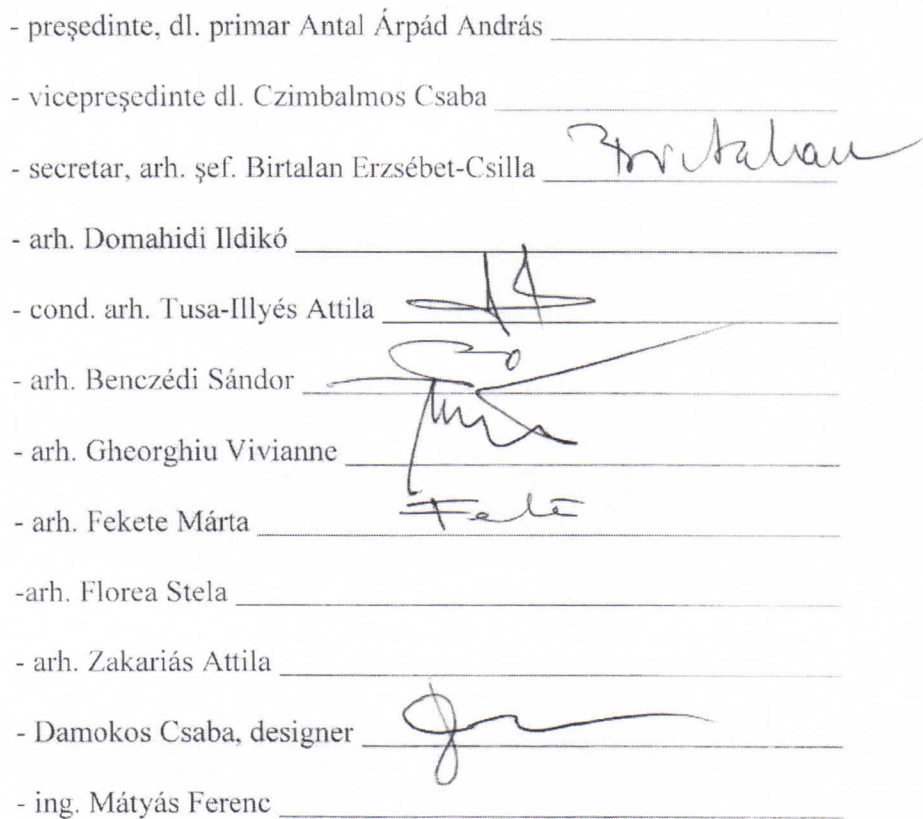 - președinte, dl. primar Antal Árpád András
- vicepreședinte dl. Czimbalmos Csaba
- secretar, arh. șef. Birtalan Erzsébet-Csilla Birtalan
- arh. Domahidi Ildikó
- cond. arh. Tusa-Illyés Attila
- arh. Benczédi Sándor
- arh. Gheorghiu Vivianne
- arh. Fekete Márta
-arh. Florea Stela
- arh. Zakariás Attila
- Damokos Csaba, designer
- ing. Mátyás Ferenc